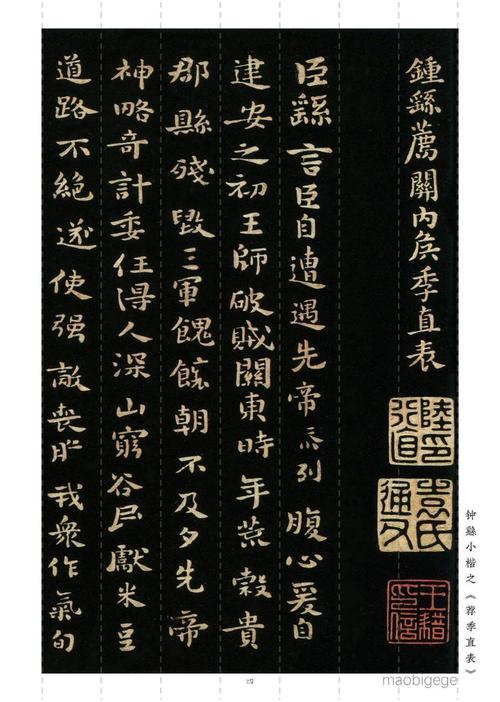 鍾繇薦關内侯季直表
陸印行直
袁氏
臣繇言臣自遭遇先帝忝列腹心爰自
建安之初王師破賊關東時年荒穀貴
郡縣殘毀三軍餽饟朝不及夕先帝
神略奇計委任得人深山窮谷民獻米豆
道路不絕遂使强敵喪膽我衆作氣旬
钟繇小楷之《荐季直表》
四
maobigege